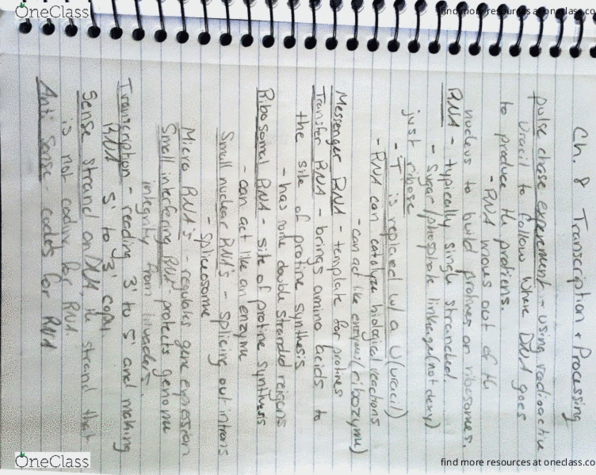 OneClass
find more resources at oneclass.com
Ch. 8 Transcription + Processing
pulse chase experiment - using radioactive
Uracil to follow where DNA goes
to produce the protiens.
- RNA moves out of the
nucleus to build protines on ribosomes.
RNA - typically single stranded
- Sugar/phosphate linkage (not deoxy)
just ribose
- T is replaced w/ a U (uracil)
- RNA can catalyze biological reactions
- can act like enzyme (ribozyme)
Messenger RNA - template for protines
Transfer RNA - brings amino acids to
the site of protine synthesis
- has some double stranded reigons
- can act like an enzyme
Ribosomal RNA - site of protine synthesis
Small nuclear RNA's - splicing out introns
- Spliceosome
Micro RNA's - regulates gene expression
Small interfering RNA protects genome
integrity from invaders.
Transcription - reading 3' to 5' and making
RNA 5' to 3' copy
Sense strand on DNA, the strand that
is not coding for RNA.
Anti sense codes for RNA
OneClass
find more resources at oneclass.com